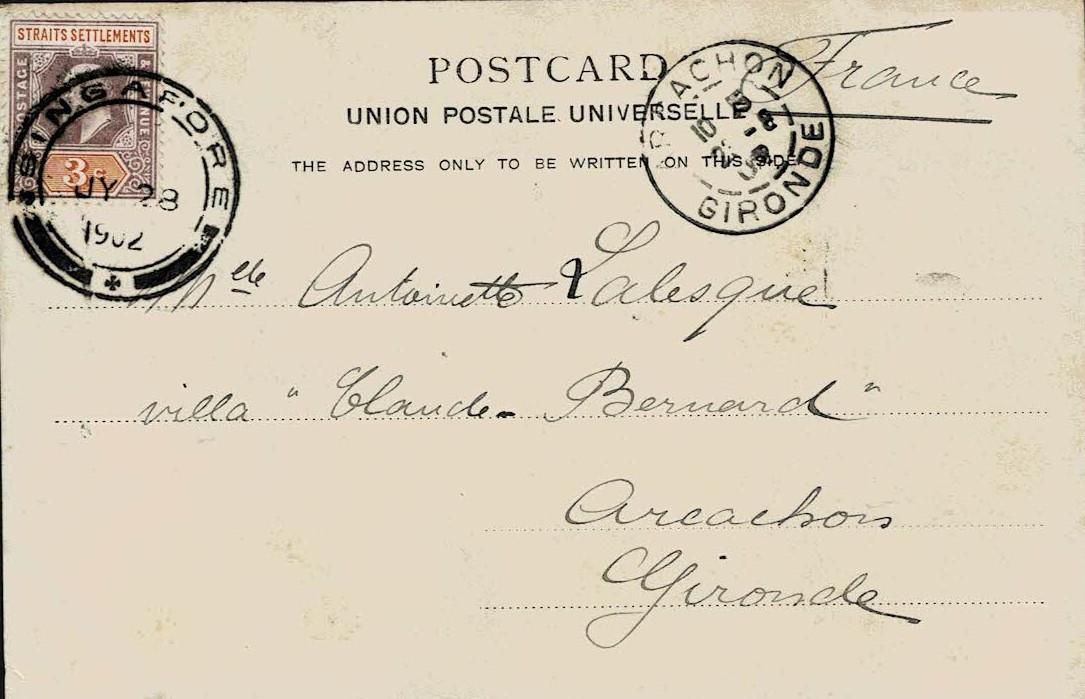 STRAITS SETTLEMENTS
POSTAGE & REVENUE
3c
SINGAPORE
JY 28
1902
POSTCARD
UNION POSTALE UNIVERSELLE
THE ADDRESS ONLY TO BE WRITTEN ON THIS SIDE
France
ARCACHON
GIRONDE
Mlle Antoinette Lalesque
villa "Claude-Bernard"
Arcachon
Gironde